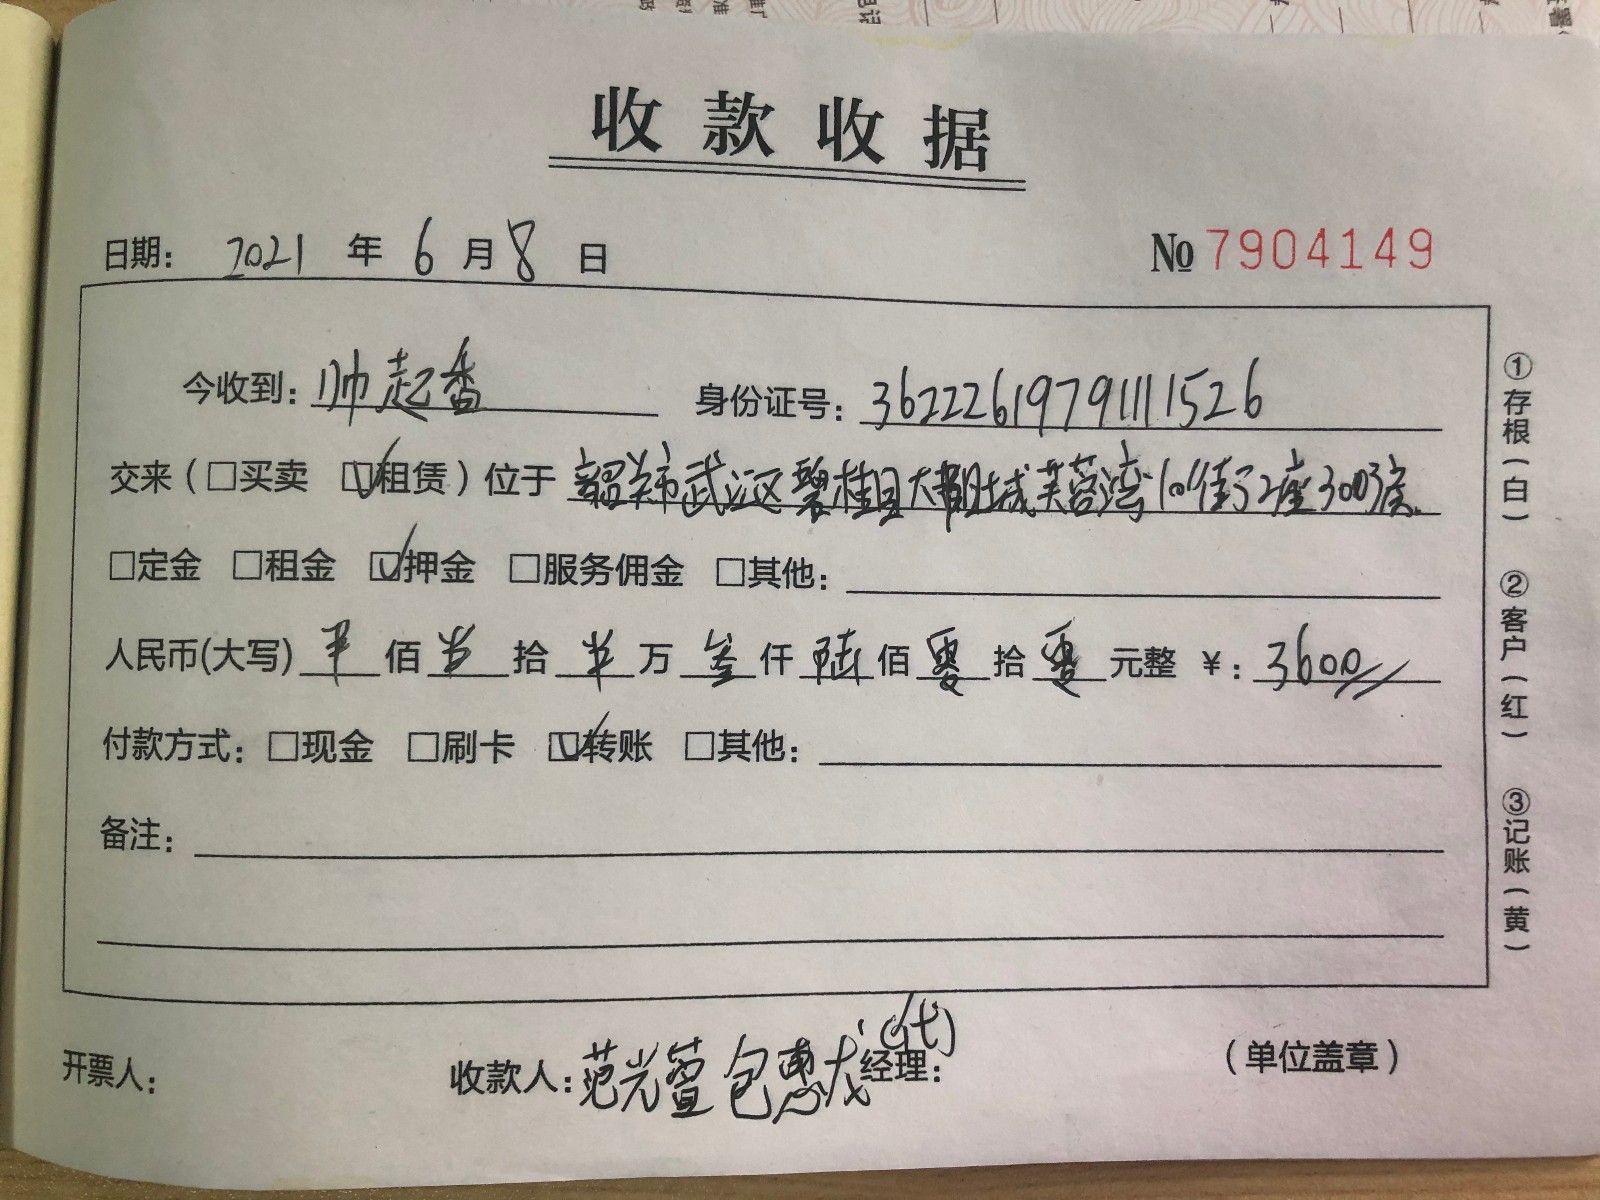 收款收据
日期： 2021 年 6 月 8 日 No 7904149
今收到：帅起香 身份证号：362226197911111526
交来（□买卖 ☑租赁）位于 韶关市武江区碧桂园太阳城芙蓉湾10街12座3003房
□定金 □租金 ☑押金 □服务佣金 □其他：
人民币(大写) 佰 拾 万 叁 仟 陆 佰 零 拾 零 元整 ￥：3600
付款方式：□现金 □刷卡 ☑转账 □其他：
备注：
开票人： 收款人：范光萱 包惠 (代) 经理： （单位盖章）
①存根（白） ②客户（红） ③记账（黄）